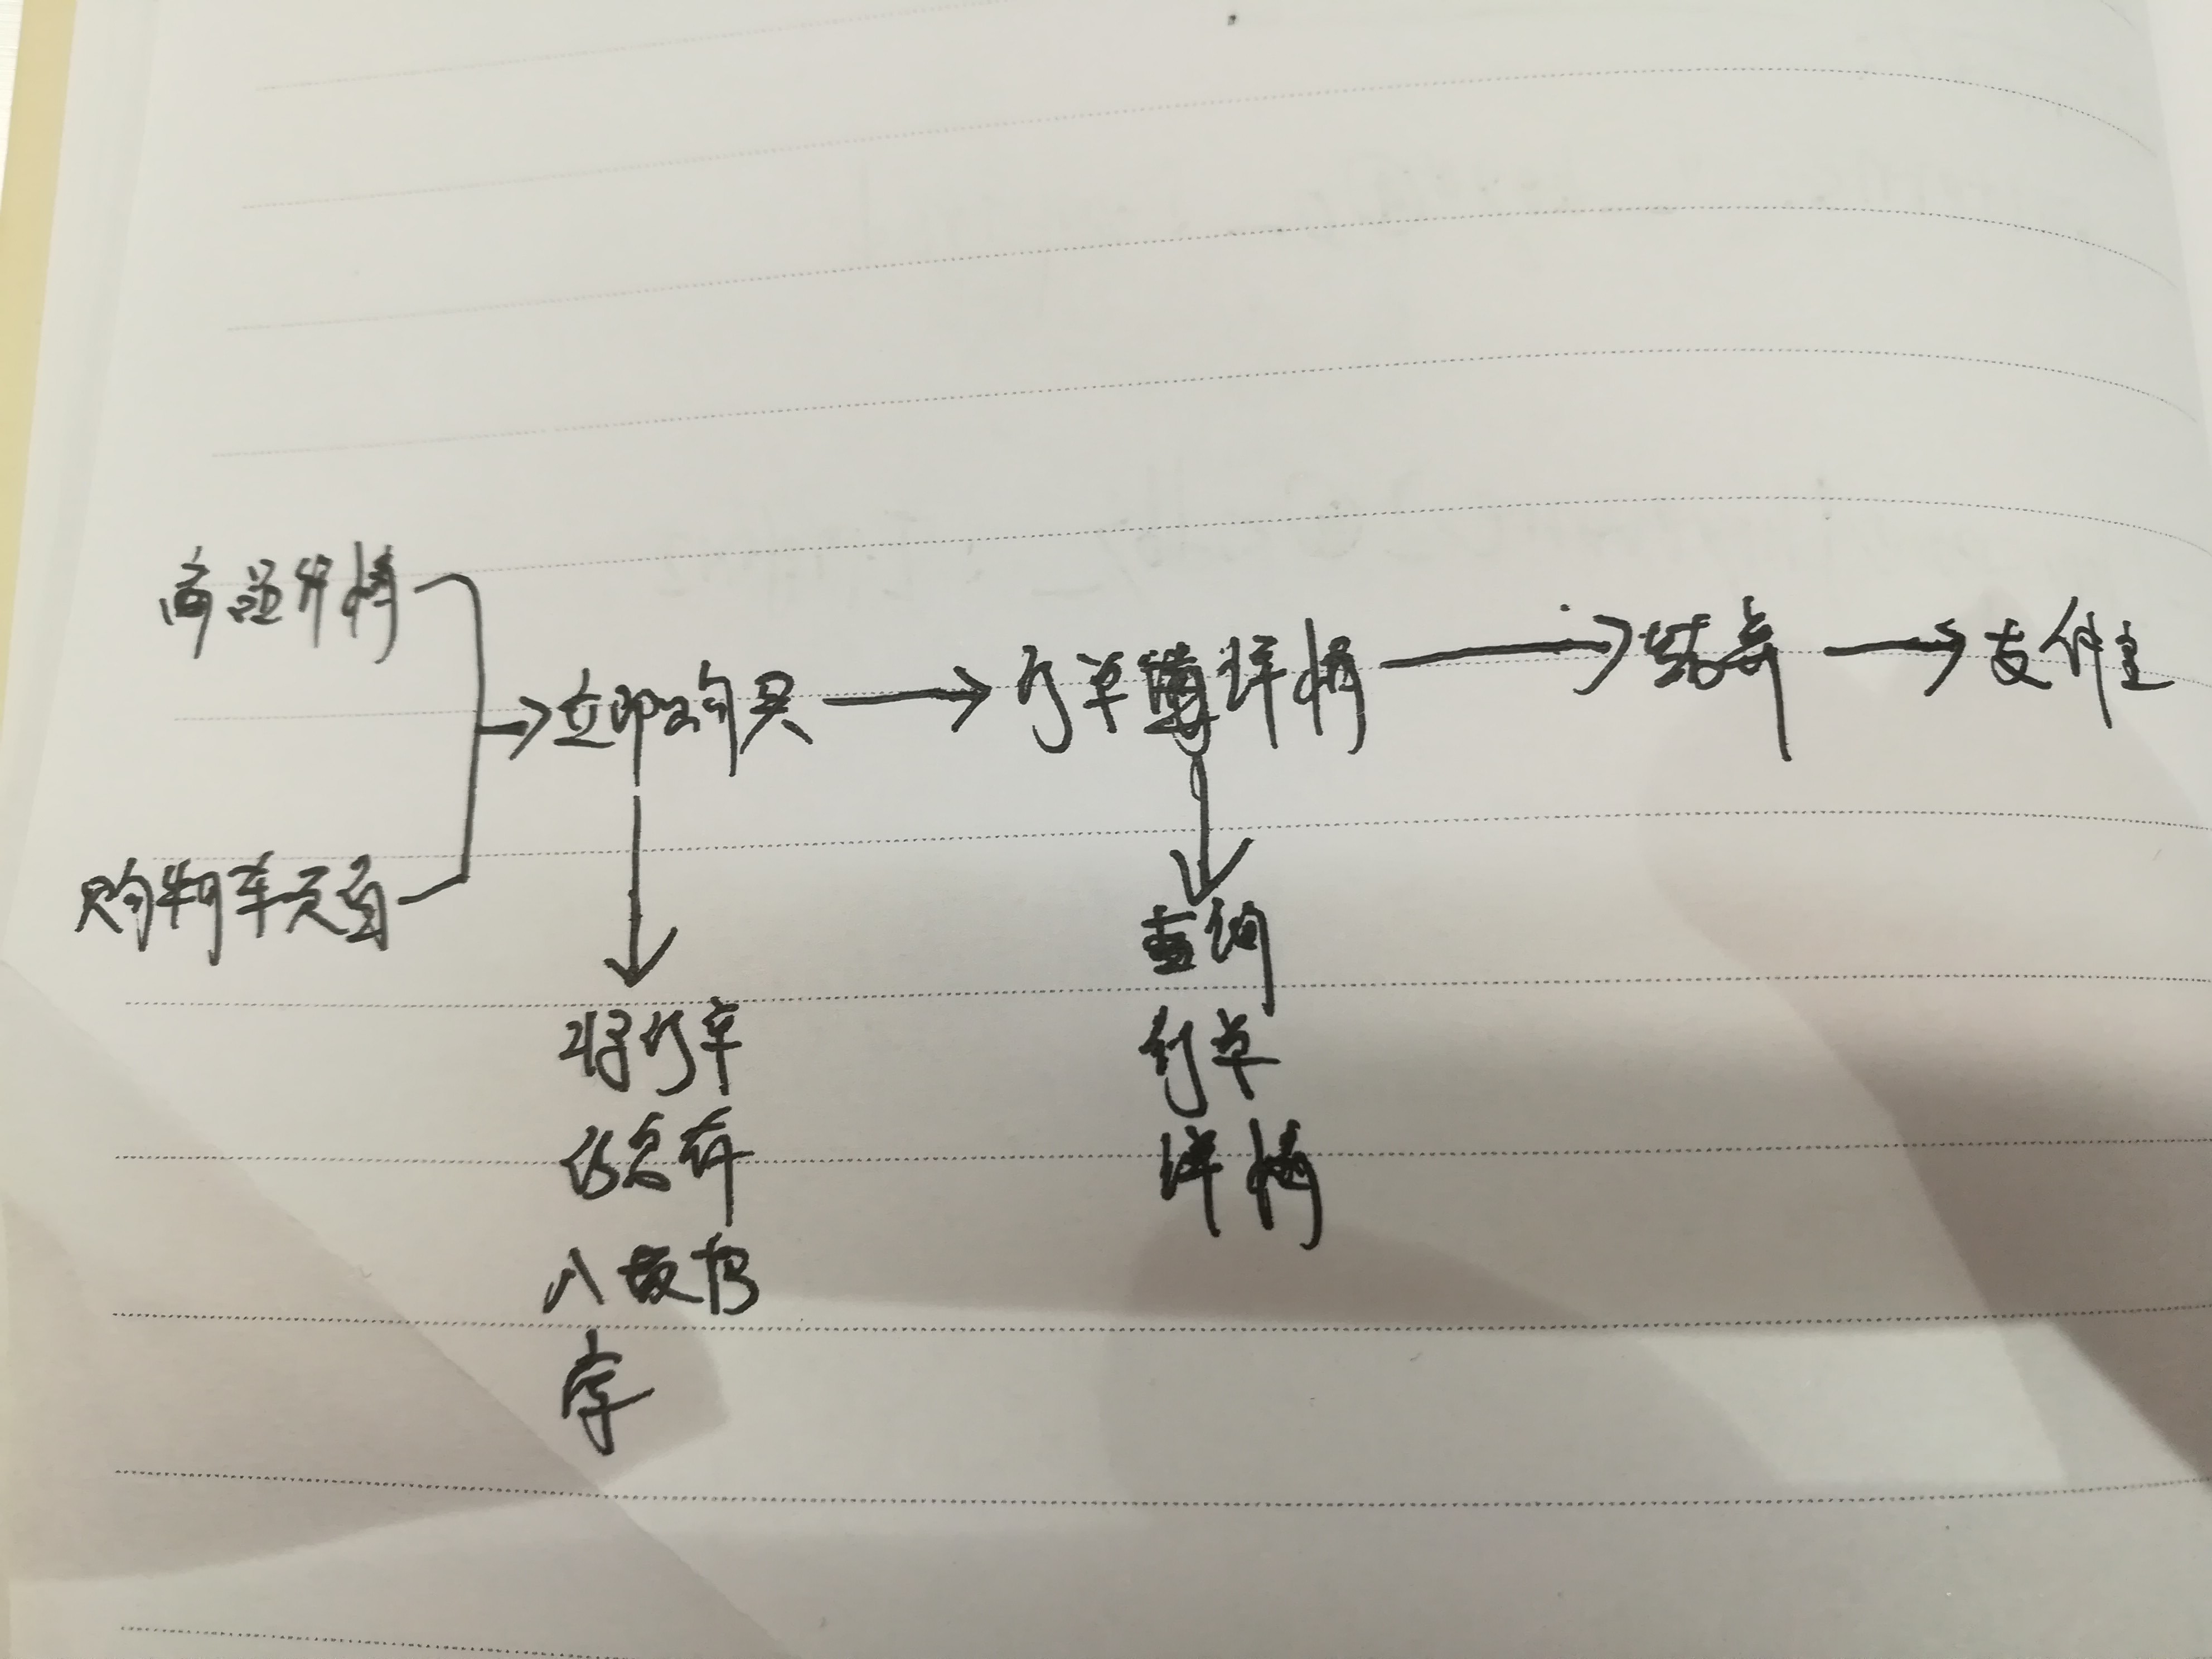 商品详情
立即购买
订单详情
结算
支付宝
购物车页面
查询
订单
详情
将订单
信息存
入数据
库